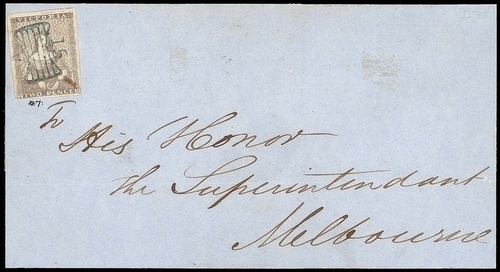 VICTORIA
TWO PENCE
#7:
To
His Honor
the Superintendant
Melbourne